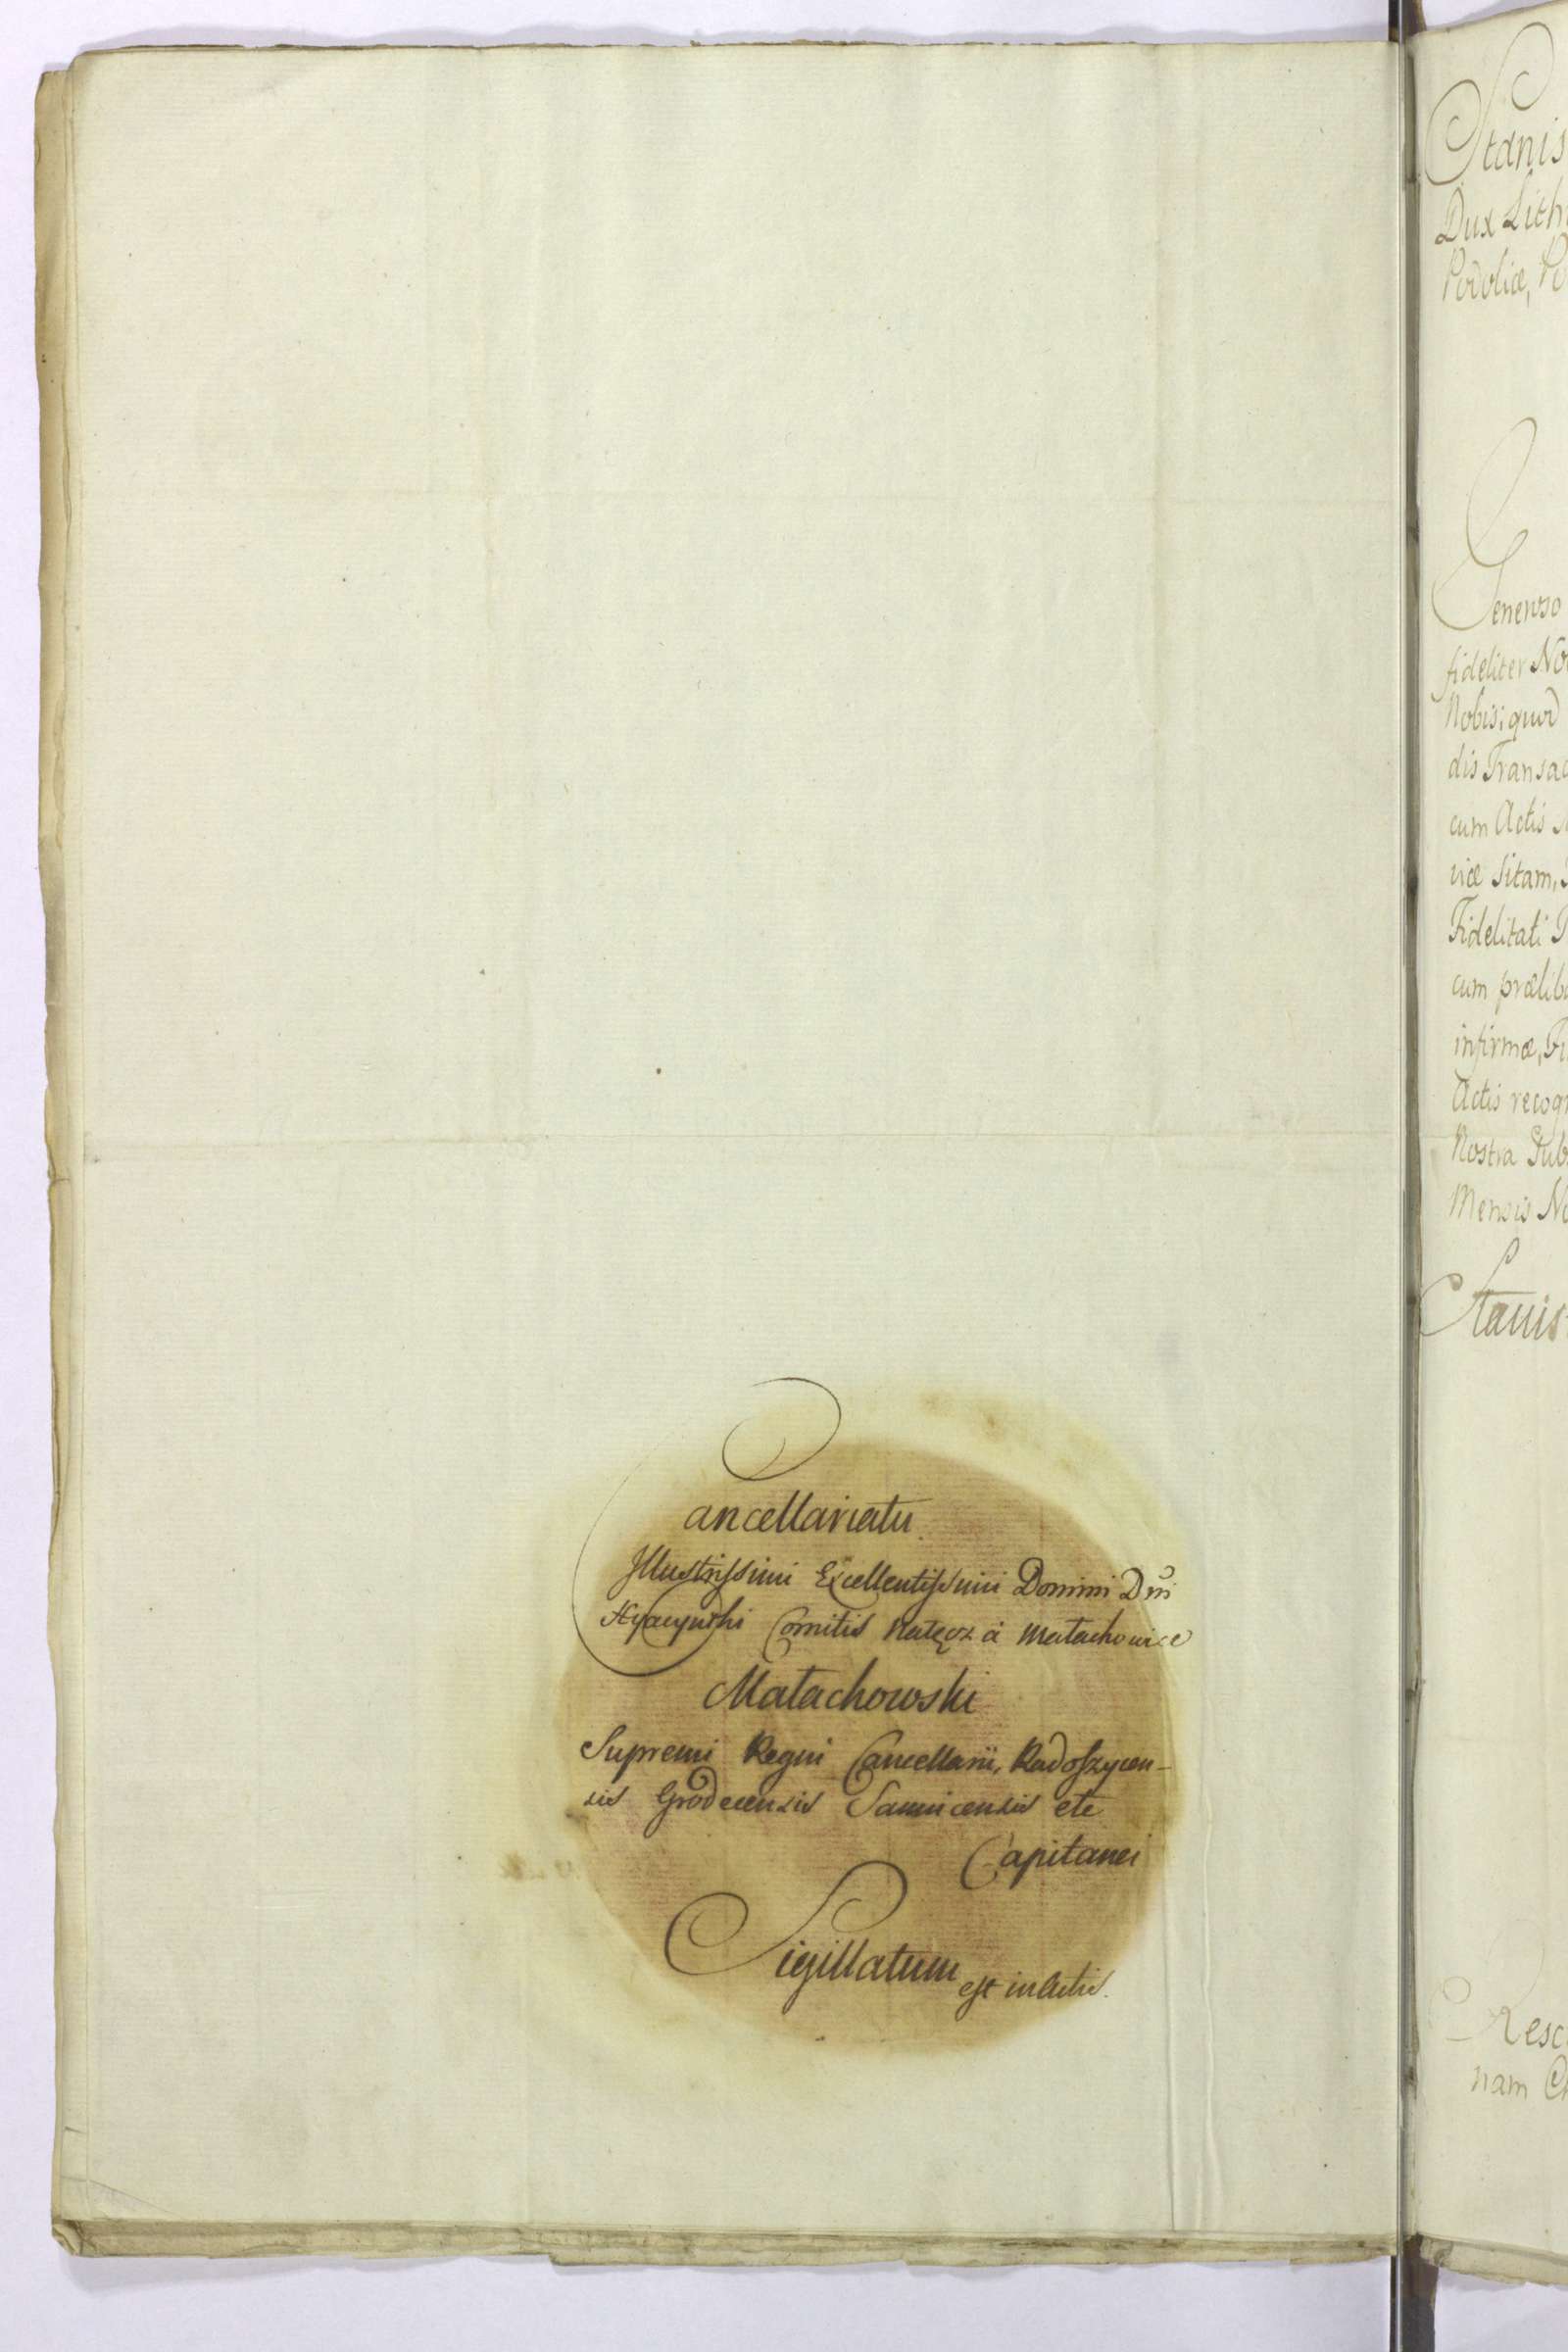 Cancellariatu
Illustrissimi Excellentissimi Domini Dni
Hyacynthi Comitis Nałęcz à Małachowice
Małachowski
Supremi Regni Cancellarii, Radoszycen-
sis Grodecensis Sannicensis etc
Capitanei
Sigillatum est in Actis.
Stanis
Dux Lith
Podoliæ, Po
Generoso
fideliter No
Nobis; quod
dis Transac
cum Actis
viæ Sitam,
Fidelitati
cum præliba
infirmæ, Fi
Actis recog
Nostra Sub
Mensis No
Stanis
Resc
nam